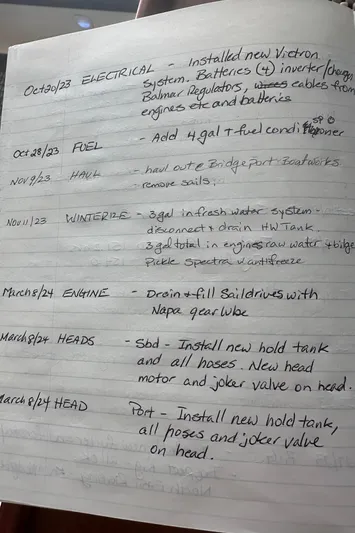 Oct 20/23 ELECTRICAL - Installed new Victron
system. Batteries (4) inverter/charger
Balmar Regulators, wires cables from
engines etc and batteries
Oct 28/23 FUEL - Add 4 gal + fuel conditioner
Nov 9/23 HAUL - haul out @ Bridgeport Boatworks
- remove sails.
Nov 11/23 WINTERIZE - 3 gal in fresh water system -
disconnect + drain HW Tank.
3 gal total in engines raw water + bilge
Pickle Spectra w antifreeze
March 8/24 ENGINE - Drain + fill Saildrives with
Napa gear lube
March 8/24 HEADS - Sbd - Install new hold tank
and all hoses. New head
motor and joker valve on head.
March 8/24 HEAD Port - Install new hold tank,
all hoses and joker valve
on head.